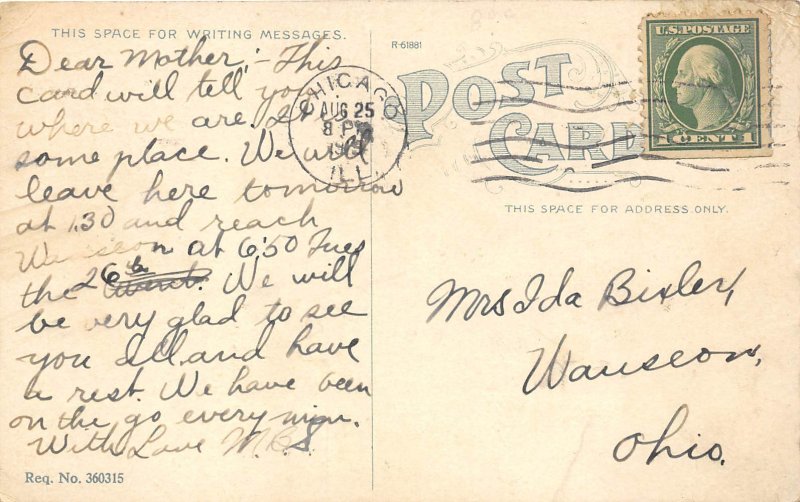 THIS SPACE FOR WRITING MESSAGES.
Dear Mother:- This
card will tell you
where we are. It
some place. We will
leave here tomorrow
at 1.30 and reach
Wauseon at 6:50 Tues
the 26th. We will
be very glad to see
you all and have
a rest. We have been
on the go every min.
With Love M.B.S.
Req. No. 360315
R-61881
POST CARD
CHICAGO
AUG 25
8 PM
ILL.
U.S. POSTAGE
1 CENT 1
THIS SPACE FOR ADDRESS ONLY.
Mrs Ida Bixler,
Wauseon,
Ohio.